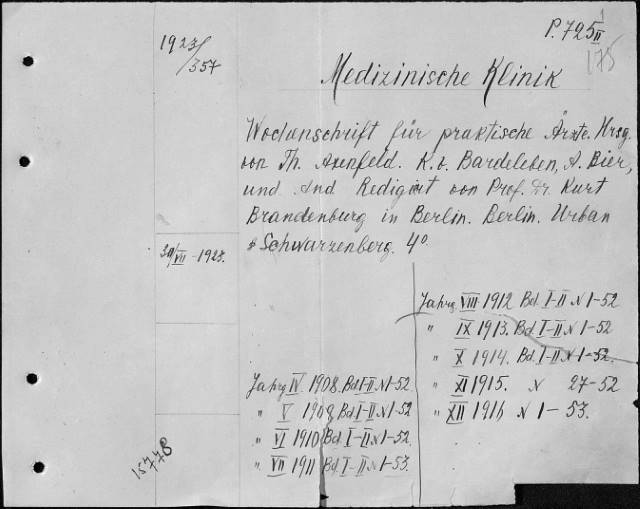 P. 725 II
1
175
1923/357
Medizinische Klinik
Wochenschrift für praktische Ärzte. Hrsg.
von Th. Axenfeld. K. v. Bardeleben, A. Bier,
und And Redigirt von Prof. Dr. Kurt
Brandenburg in Berlin. Berlin. Urban
& Schwarzenberg. 4°.
30/VII - 1923.
Jahrg. IV 1908. Bd I-II N 1-52.
" V 1909 Bd I-II N 1-52
" VI 1910 Bd I-II N 1-52.
" VII 1911 Bd I-II N 1-53.
Jahrg. VIII 1912 Bd. I-II N 1-52
" IX 1913. Bd I-II N 1-52
" X 1914. Bd. I-II N 1-52.
" XI 1915. N 27-52
" XII 1916 N 1-53.
15778